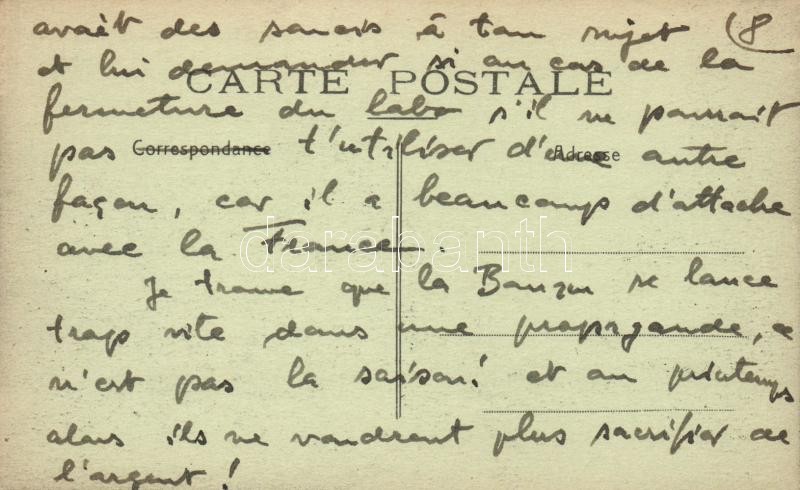 avait des soucis à ton sujet (8
et lui demander si au cas de la
CARTE POSTALE
fermeture du labo s'il ne pourrait
Correspondance
Adresse
pas t'utiliser d'une autre
façon, car il a beaucoup d'attache
avec la France.
darabanth
Je trouve que la se lance
trop vite dans une propagande, ce
n'est pas la saison! et au printemps
alors ils ne voudront plus sacrifier de
l'argent!